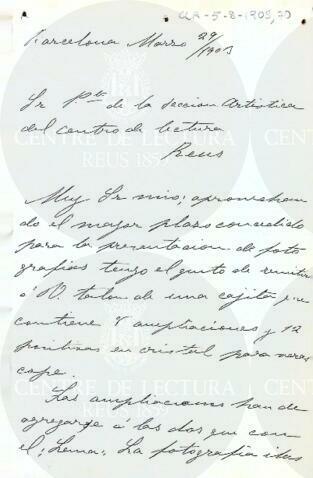 CLR-5-8-1903,70
Barcelona Marzo 29/1903
Sr Pte de la Seccion Artistica
del Centro de lectura
Reus
Muy Sr mio; aprovechan
do el mayor plazo concedido
para la presentacion de foto
grafias tengo el gusto de remitir
á V. talon de una cajita que
contiene 8 ampliaciones y 12
positivas en cristal para veras
cope.
Las ampliaciones han de
agregarse á las dos que con
el; Lema; La fotografia
CENTRE DE LECTURA
REUS 1859